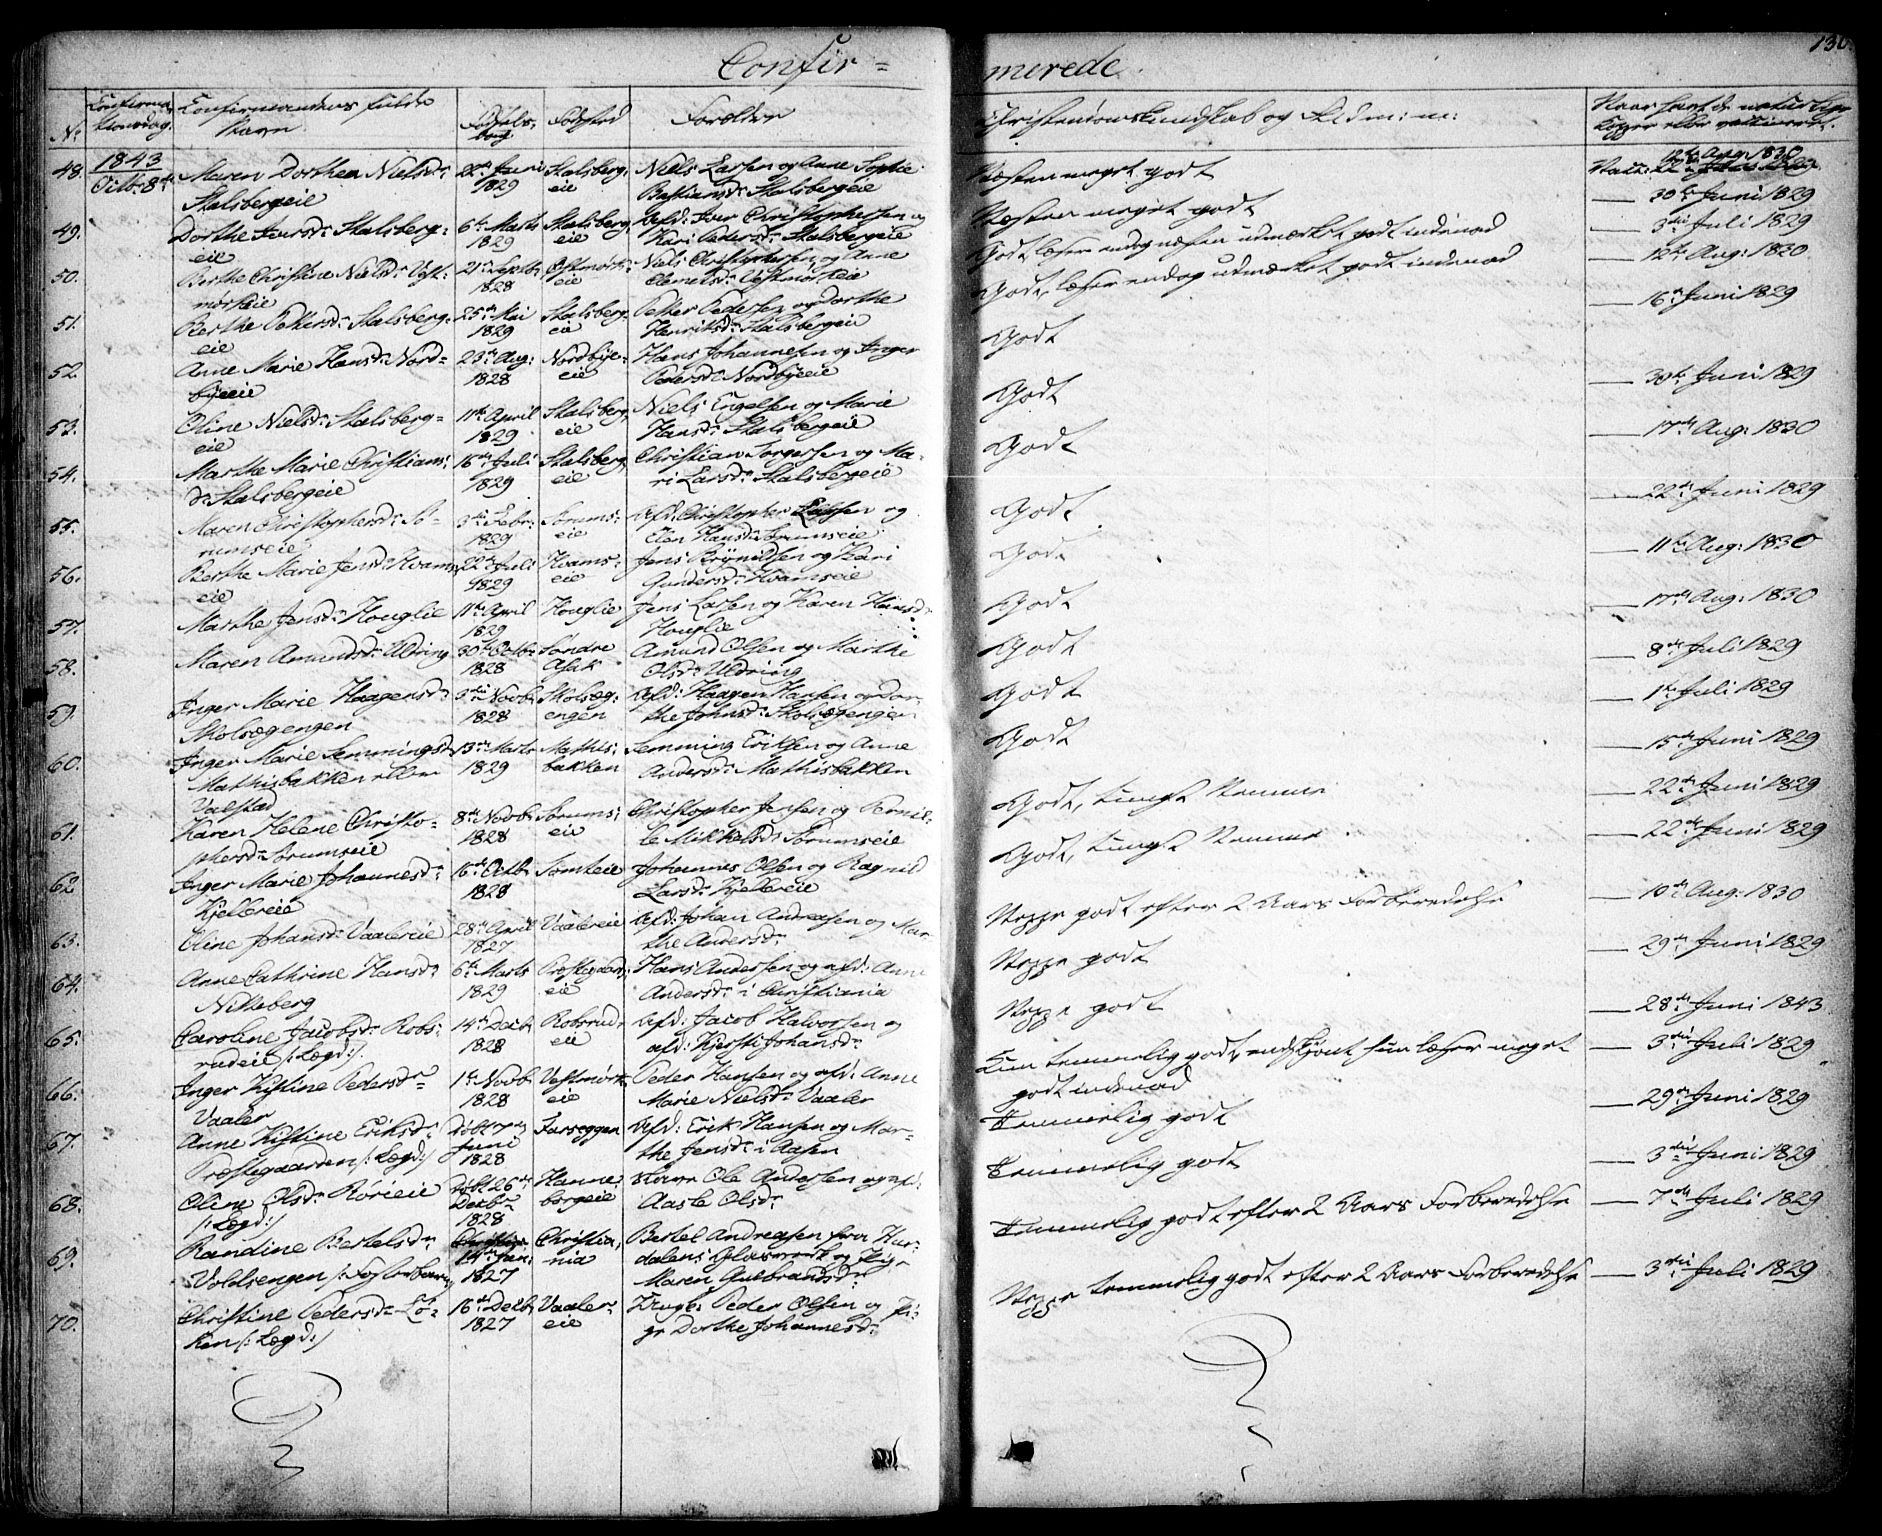 Confir = merede.
130.
No.
Confirma-
tionsdag.
Confirmandens fulde
Navn.
Fødsels-
dag.
Fødested
Forældre
Christendomskundskab og Fl. d: m: m:
Naar havt de naturlige
Kopper eller vaccineret.
48.
1843
Octb: 8de
Maren Dorthea Nielsdr:
Skalsbergeie
22de Juni
1829
Skalsberg-
eie
Niels Larsen og Anne Sophie
Bastiansdr: Skalsbergeie
Næsten meget godt
12te Aug: 1830
49.
Dorthe Iversdr: Skalsberg-
eie
6te Marts
1829
Skalsberg-
eie
Afd: Iver Christophersen og
Kari Pedersdr: Skalsbergeie
Næsten meget godt
30te Juni 1829
50.
Berthe Christine Nielsdr: Vest-
mørkeie
21de Septb:
1828
Østmørk-
eie
Niels Christophersen og Anne
Clemetsdr: Vestmørkeie
Godt læser endog næsten udmærket godt indenad
3die Juli 1829
51.
Berthe Pettersdr: Skalsberg-
eie
25de Mai
1829
Skalsberg-
eie
Petter Pedersen og Dorthe
Henriksdr: Skalsbergeie
Godt, læser endog udmærket godt indenad
12te Aug: 1830
52.
Anne Marie Hansdr: Nord-
byeeie
23de Aug:
1828
Nordbye-
eie
Hans Johannesen og Inger
Pedersdr: Nordbyeeie
Godt
16de Juni 1829
53.
Oline Nielsdr: Skalsberg-
eie
11te April
1829
Skalsberg-
eie
Niels Engelsen og Marie
Hansdr: Skalsbergeie
Godt
30te Juni 1829
54.
Marthe Marie Christians-
dr: Skalsbergeie
16de Juli
1829
Skalsberg-
eie
Christian Torgersen og Ma-
ri Larsdr: Skalsbergeie
Godt
17de Aug: 1830
55.
Maren Christophersdr: Sø-
rumseie
3die Febr:
1829
Sørums-
eie
Afd: Christopher Larsen og
Elen Hansdr: Sørumseie
Godt
22de Juni 1829
56.
Berthe Marie Jensdr: Hvams-
eie
22de Juli
1829
Hvams-
eie
Jens Brynildsen og Kari
Gundersdr: Hvamseie
Godt
11te Aug: 1830
57.
Marthe Jensdr: Houglie
11te April
1829
Houglie
Jens Larsen og Karen Hansdr:
Houglie
Godt
17de Aug: 1830
58.
Maren Amundsdr: Uldring
30te Octb:
1828
Søndre
Asak
Amund Olsen og Marthe
Olsdr: Uldring
Godt
8de Juli 1829
59.
Inger Marie Haagensdr:
Skolsægengen
3die Novb:
1828
Skolsæg-
engen
Afd: Haagen Hansen og Dor-
the Johnsdr: Skolsægengen
Godt
1ste Juli 1829
60.
Inger Marie Semmingsdr:
Mathisbakken eller
Valstad
13de Marts
1829
Mathis-
bakken
Semming Eriksen og Anne
Andersdr: Mathisbakken
Godt
15de Juni 1829
61.
Karen Helene Christo-
phersdr: Sørumseie
8de Novb:
1828
Sørums-
eie
Christopher Jensen og Pernil-
le Mikkelsdr: Sørumseie
Godt, tungt Nemme
22de Juni 1829
62.
Inger Marie Johannesdr:
Kjellereie
16de Octb:
1828
Tomteie
Johannes Olsen og Ragnild
Larsdr: Kjellereie
Godt, tungt Nemme
22de Juni 1829
63.
Oline Johansdr: Vaalereie
28de April
1827
Vaalereie
Afd: Johan Andreasen og Mar-
the Andersdr:
Neppe godt efter 2 Aars Forberedelse
19de Aug: 1830
64.
Anne Cathrine Hansdr:
Nitteberg
6te Marts
1829
Præstegaards-
eie
Hans Andersen og afd: Anne
Andersdr: i Christiania
Neppe godt
29de Juni 1829
65.
Caroline Jacobsdr: Robs-
rudeie /: Lægd:/
14de Decb:
1828
Robsrud-
eie
Afd: Jacob Halvorsen og
afd: Kjersti Johansdr:
Neppe godt
28de Juni 1843
66.
Inger Kistine Pedersdr:
Vaaler
1ste Novb:
1828
Vestmørk-
eie
Peder Hansen og afd: Anne
Marie Nielsdr: Vaaler
Kun temmelig godt, endskjønt hun læser meget
godt indenad
3die Juli 1829
67.
Anne Kistine Eriksdr:
Præstegaarden /: Lægd:/
Døbt 7de
Juni
1828
Farseggen
Afd: Erik Hansen og Mar-
the Jensdr: i Aasen
Temmelig godt
29de Juni 1829
68.
Oline Olsdr: Rørieie
/: Lægd:/
Døbt 26de
Decbr:
1828
Hanne-
borgeie
Ole Andersen og afd:
Aasle Olsdr:
Temmelig godt
3die Juni 1829
69.
Randine Bertelsdr:
Voldsengen /: Fosterbarn
14de Jan:
1827
Christia-
nia
Bertel Andreasen fra Hur-
dalens Glasværk og Pige
Maren Gulbrandsdr:
Temmelig godt efter 2 Aars Forberedelse
7de Juli 1829
70.
Christine Pedersdr: Lø-
ken /: Lægd:/
16de Decb:
1827
Vaaler-
eie
Peder Olsen og Pi-
ge Dorthe Johannesdr:
Neppe temmelig godt efter 2 Aars Forberedelse
3die Juli 1829